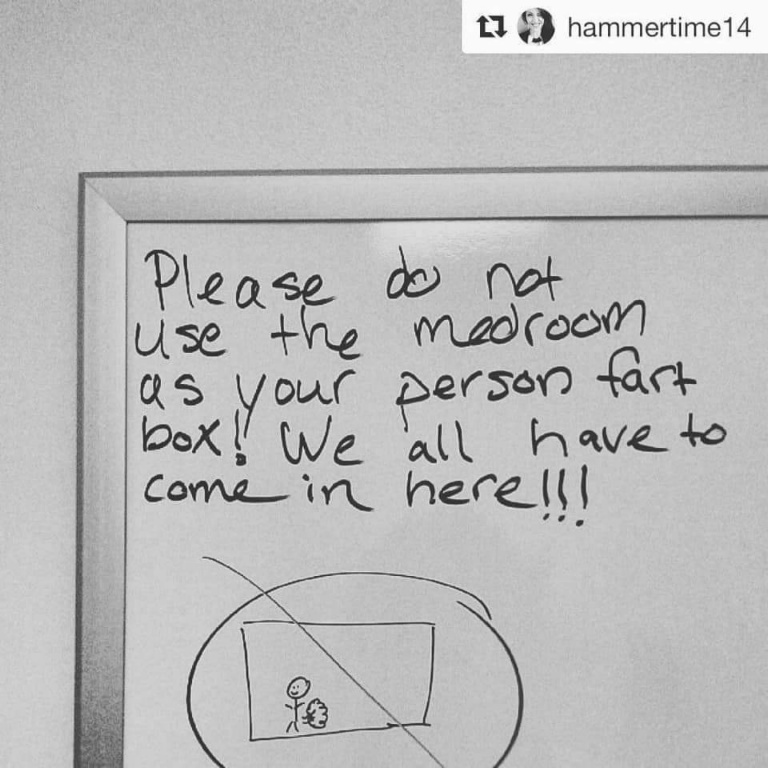 hammertime14
Please do not
use the medroom
as your person fart
box! We all have to
come in here!!!